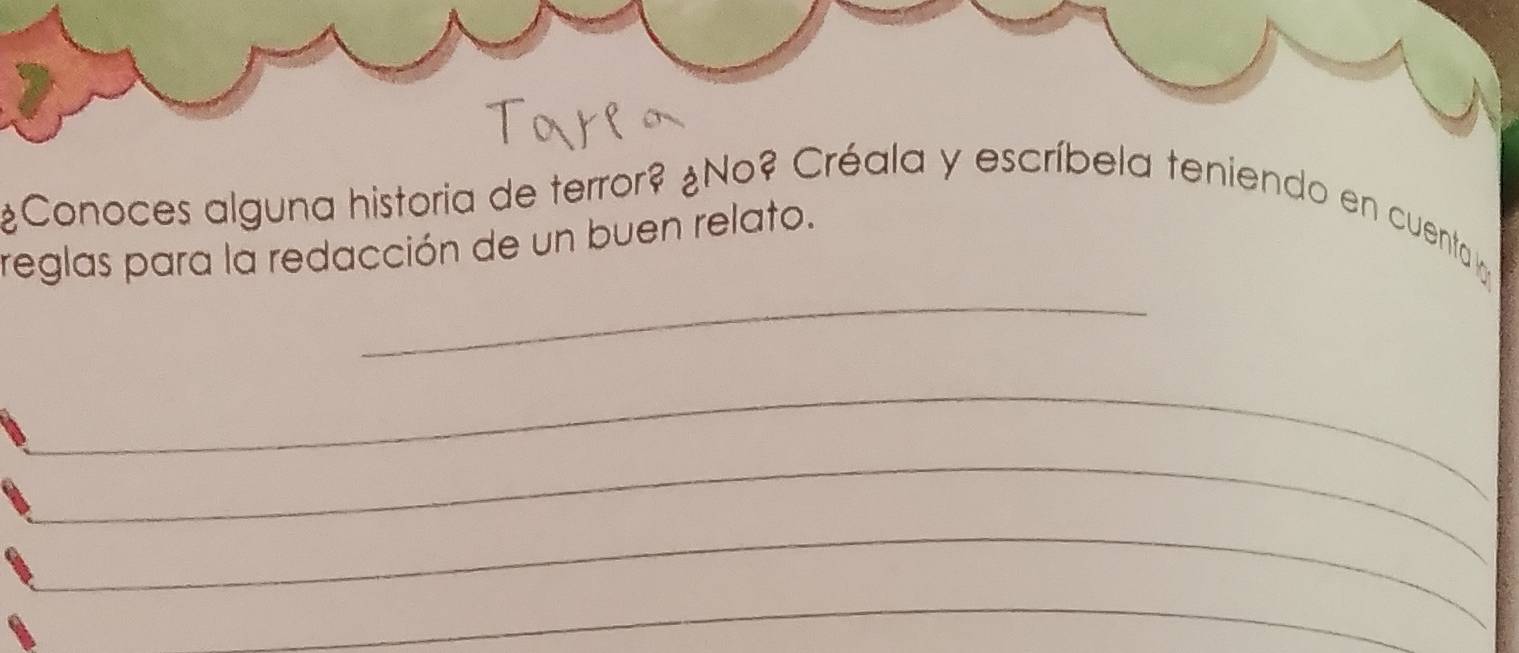 Tarea
¿Conoces alguna historia de terror? ¿No? Créala y escríbela teniendo en cuenta las
reglas para la redacción de un buen relato.